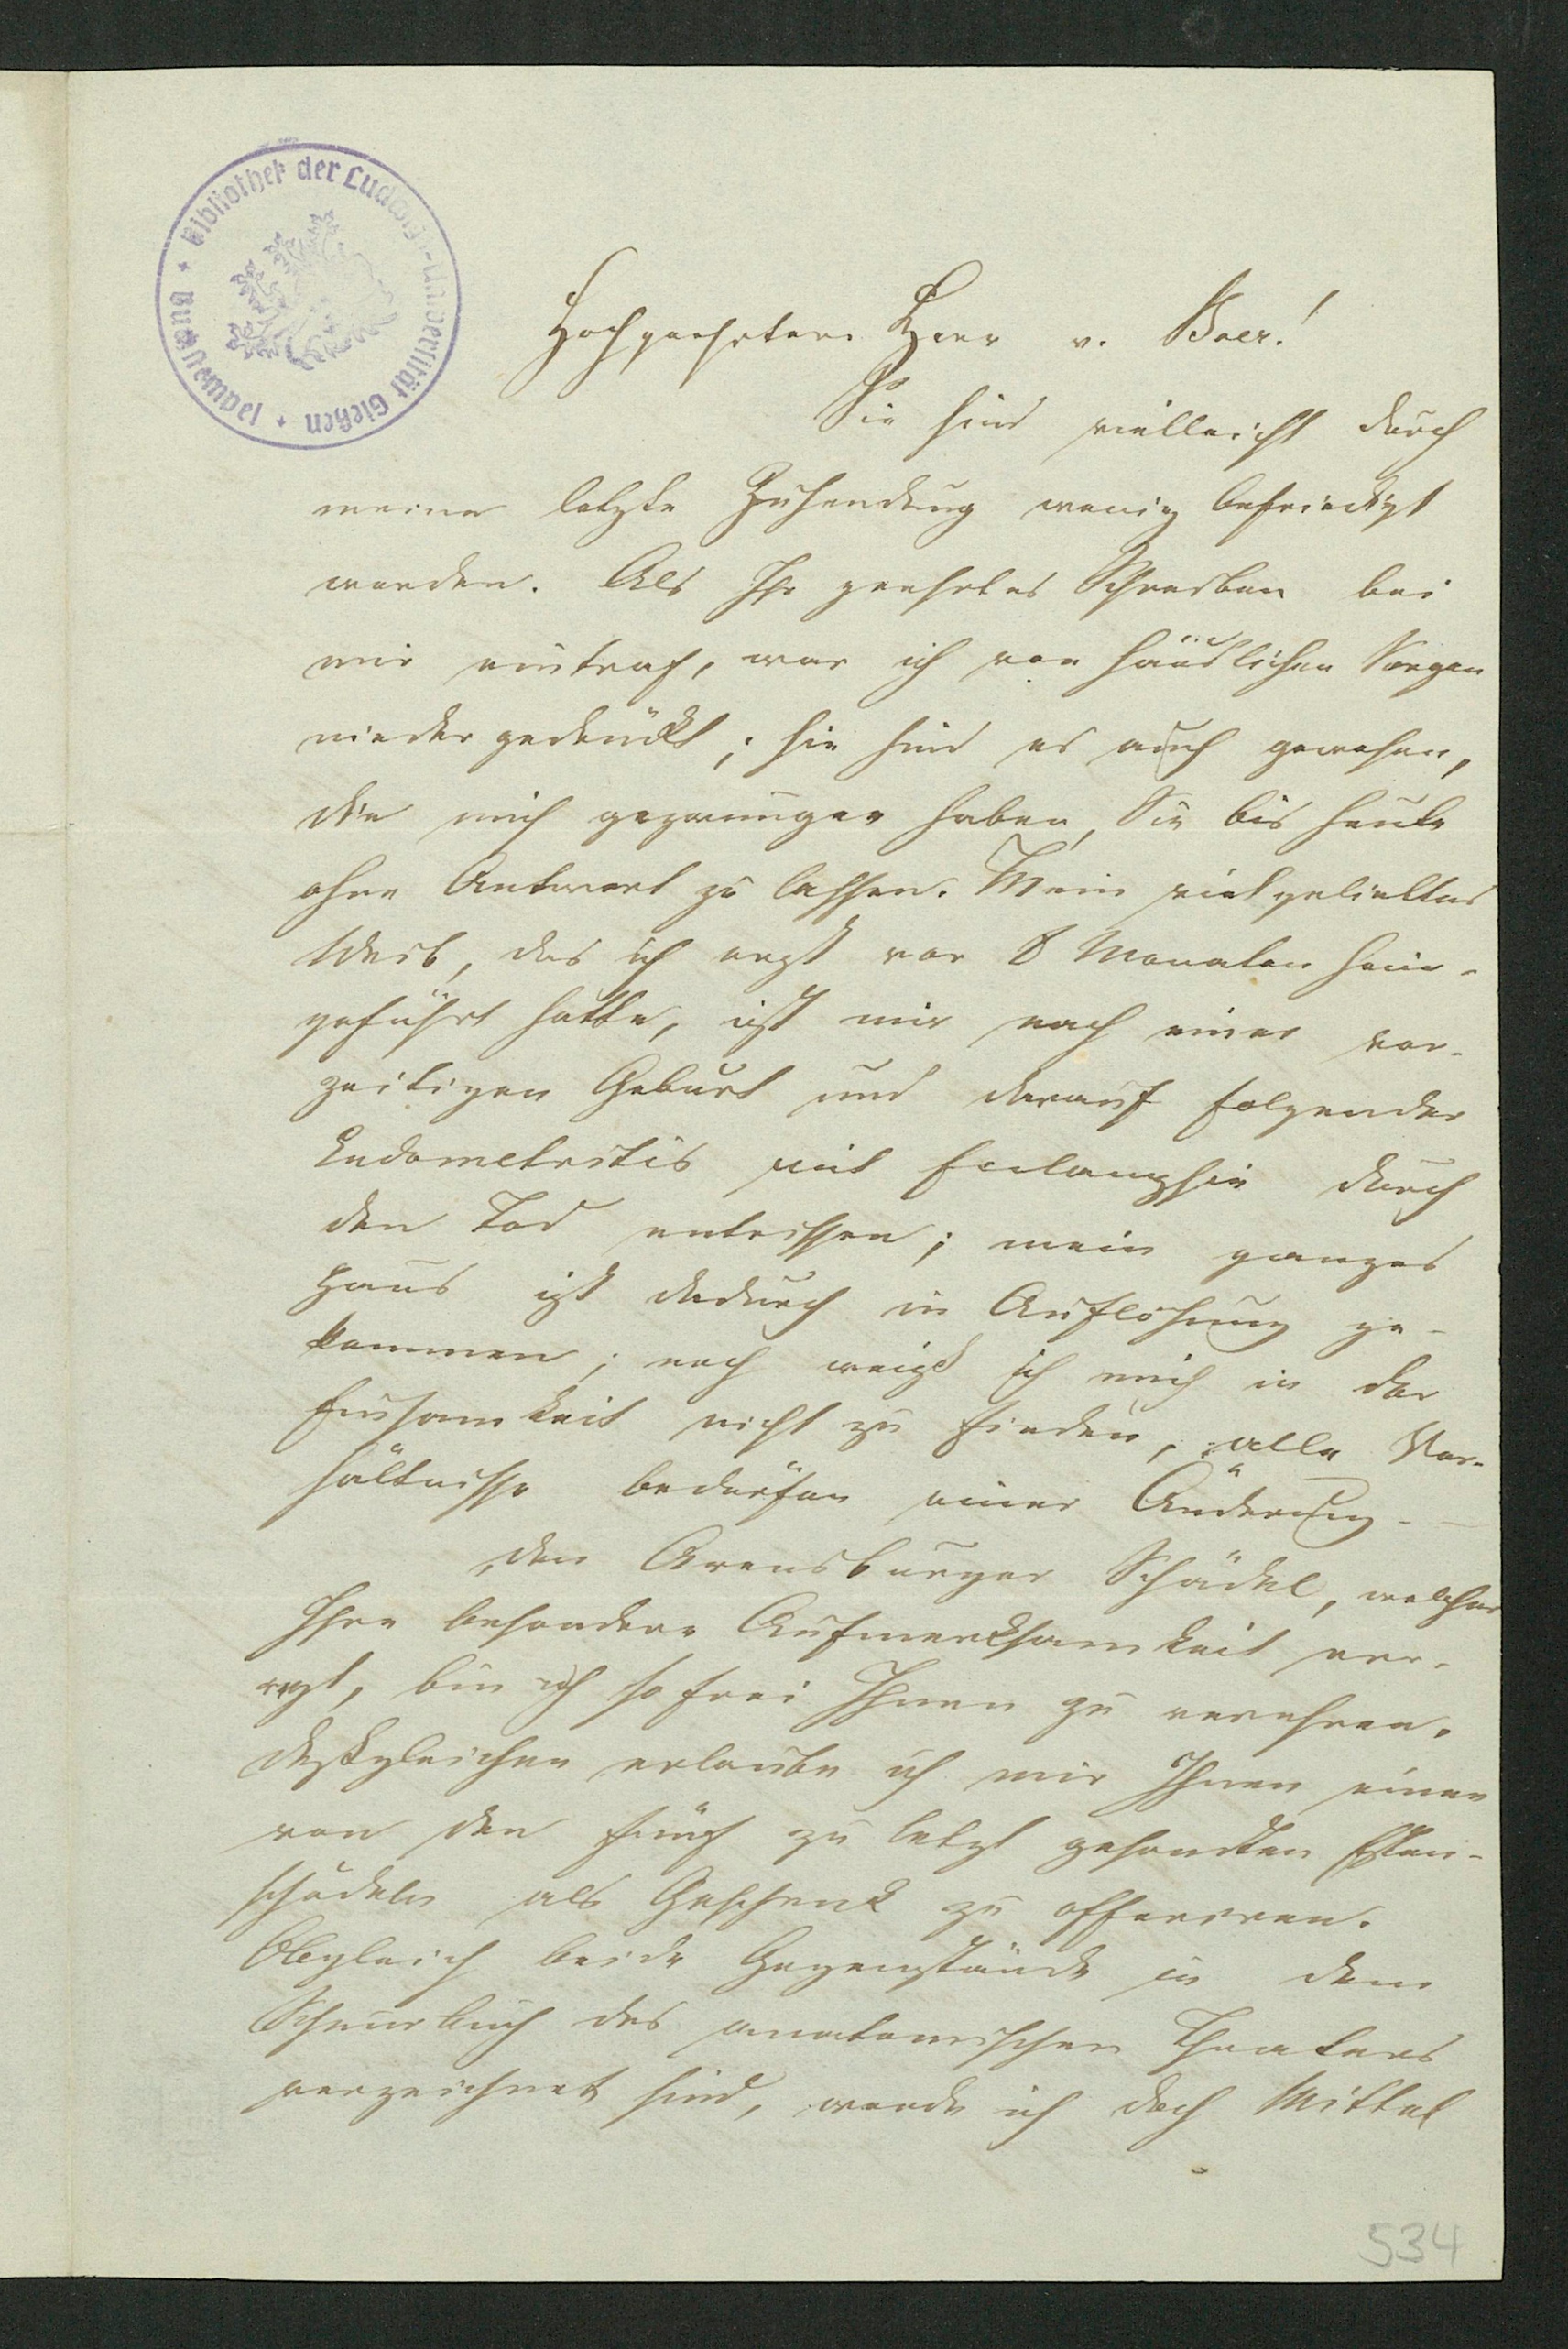 Bibliothek der Ludwigs-Universität Gießen
Buchstempel
Hochgeehrter Herr v. Baer!
Sie sind vielleicht durch
meine letzte Zusendung wenig befriedigt
worden. Als Ihr geehrtes Schreiben bei
mir eintraf, war ich von häuslichen Sorgen
niedergedrückt; sie sind es auch gewesen,
die mich gezwungen haben, Sie bis heute
ohne Antwort zu lassen. Mein vielgeliebtes
Weib, das ich erst vor 8 Monaten heim-
geführt hatte, ist mir nach einer vor-
zeitigen Geburt und darauf folgender
Endometritis mit Eclampsie durch
den Tod entrissen; mein ganzes
Haus ist dadurch in Auflösung ge-
kommen; noch weiß ich mich in der
Einsamkeit nicht zu finden, alle Ver-
hältnisse bedürfen einer Änderung. —
Den Arensburger Schädel, welcher
Ihre besondere Aufmerksamkeit er-
regt, bin ich so frei Ihnen zu verehren.
Desgleichen erlaube ich mir Ihnen einen
von den fünf zu letzt gesandten Esten-
schädeln als Geschenk zu offeriren.
Obgleich beide Gegenstände in dem
Schnurbuch des anatomischen Theaters
verzeichnet sind, werde ich doch Mittel
534